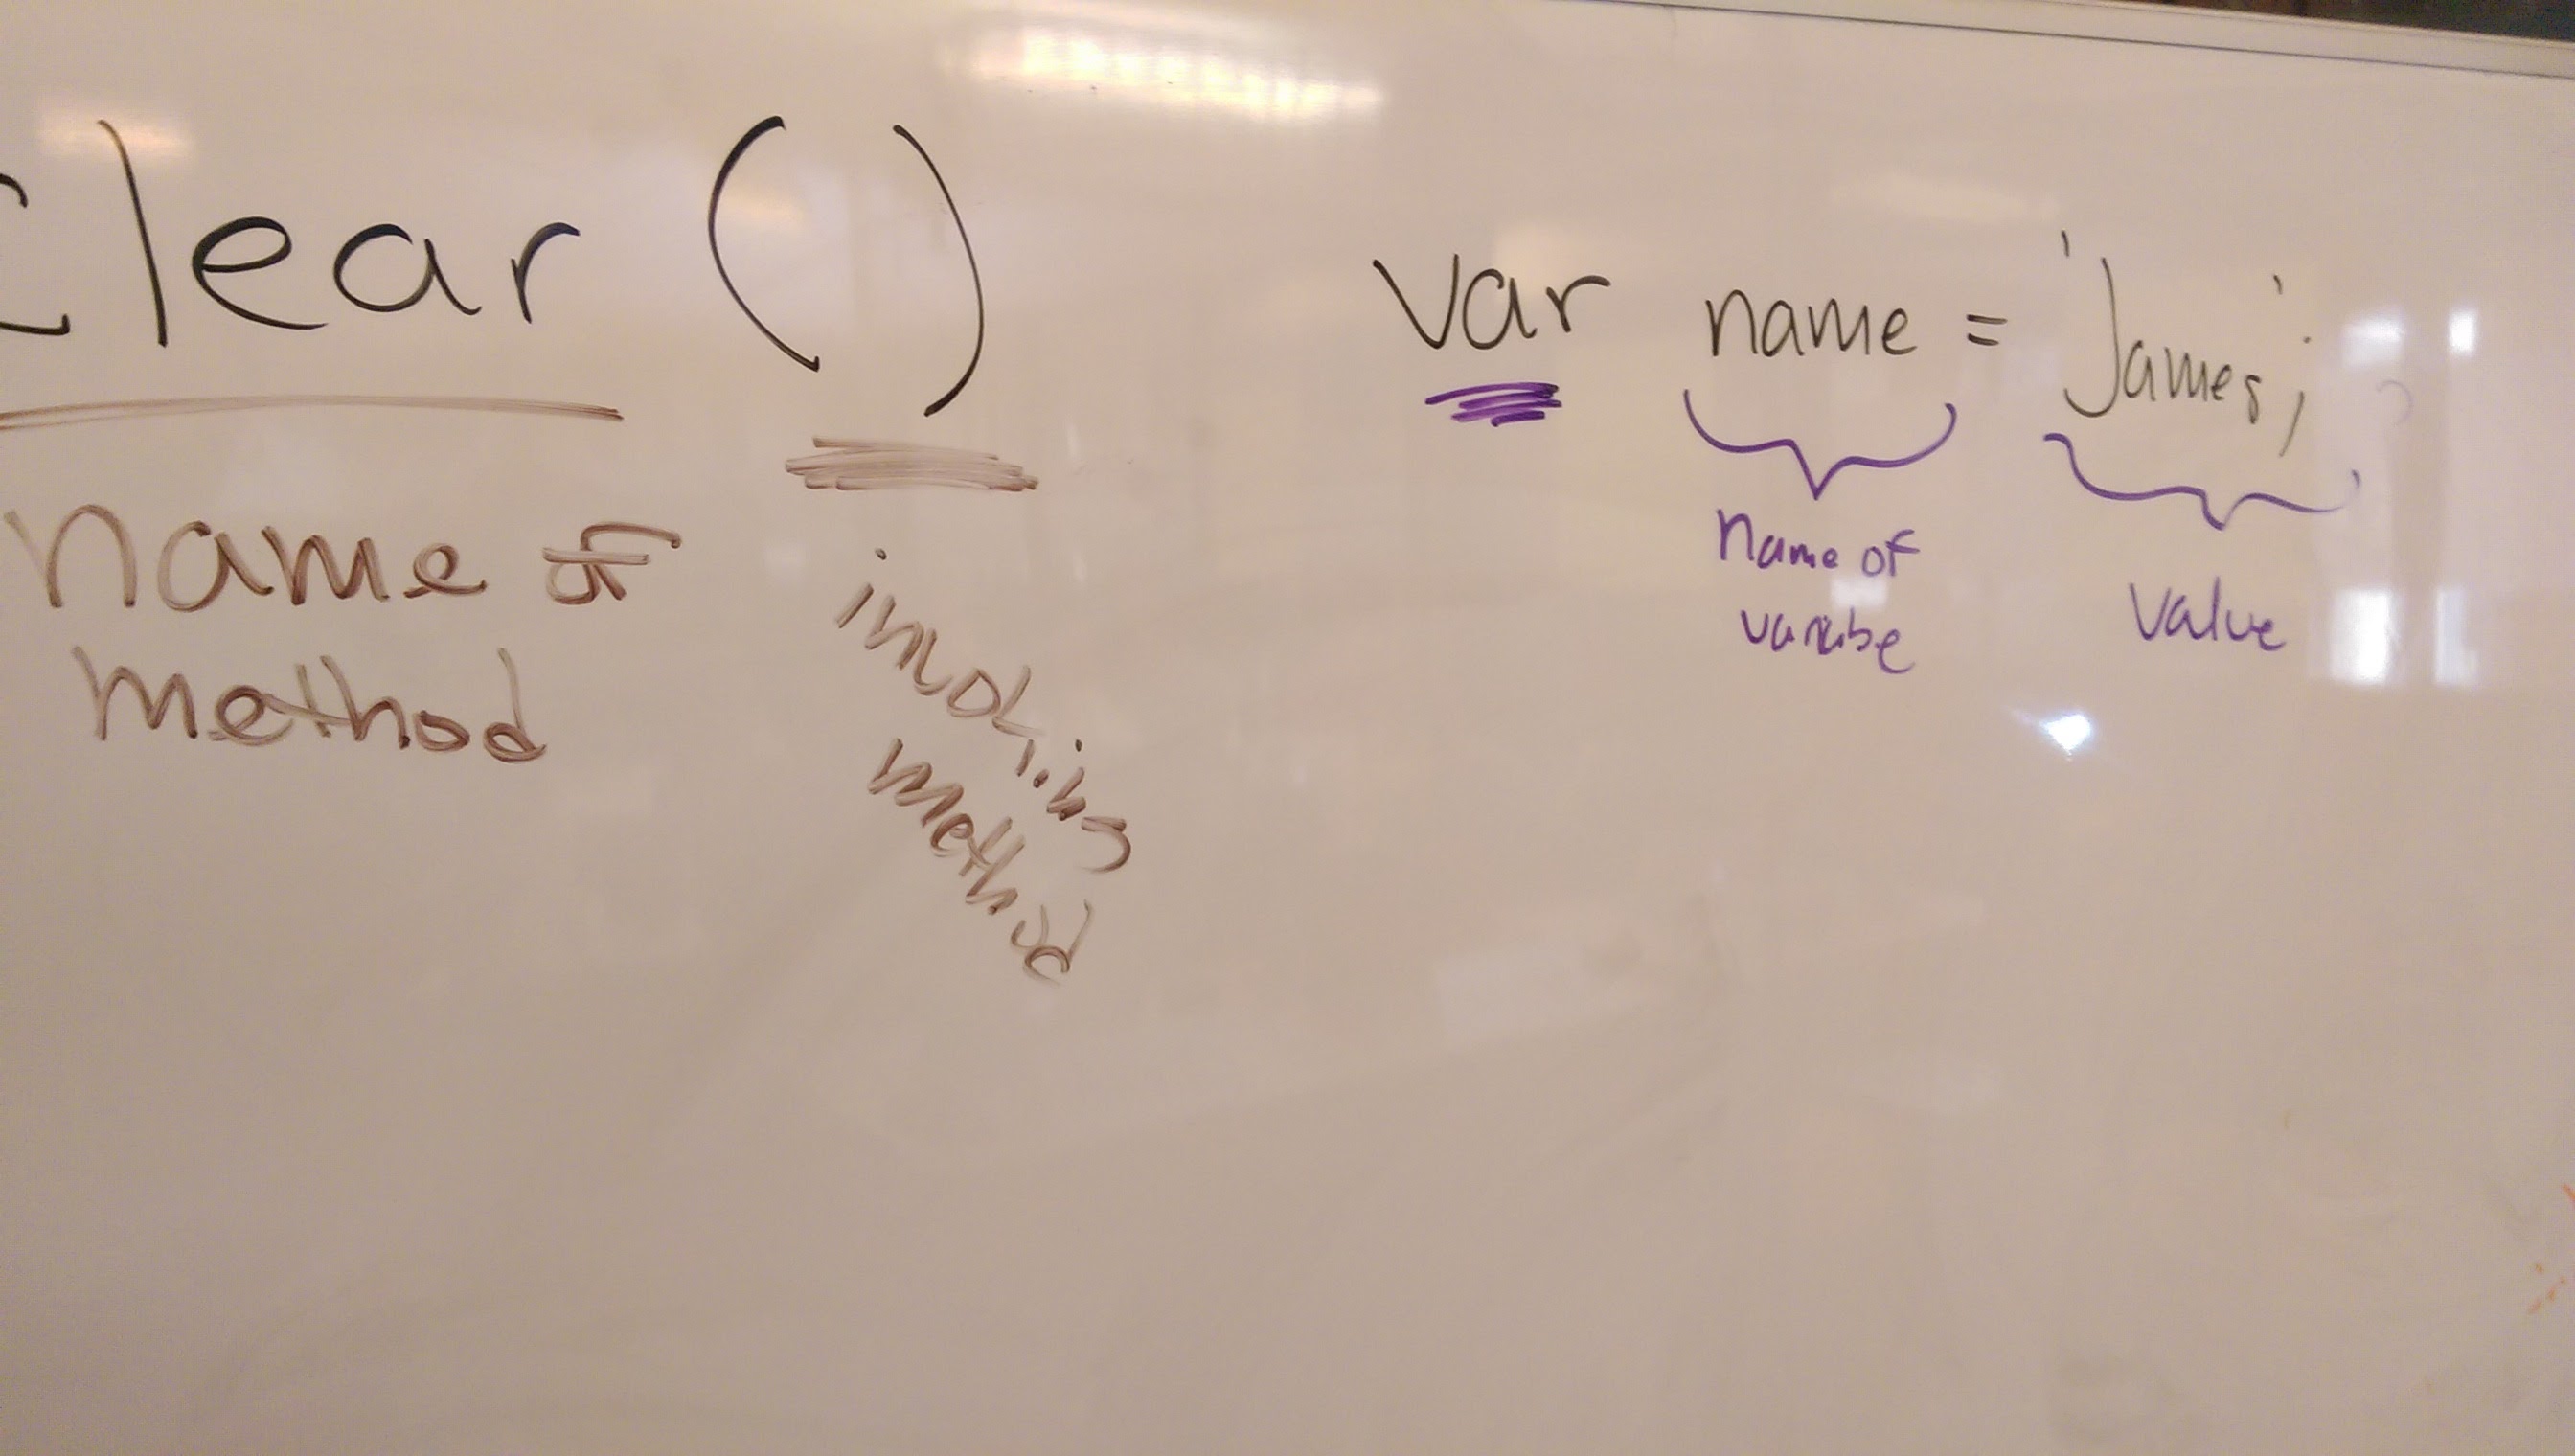 clear ()
name of
method
invoking
method
var name = 'James';
name of
variabe
value